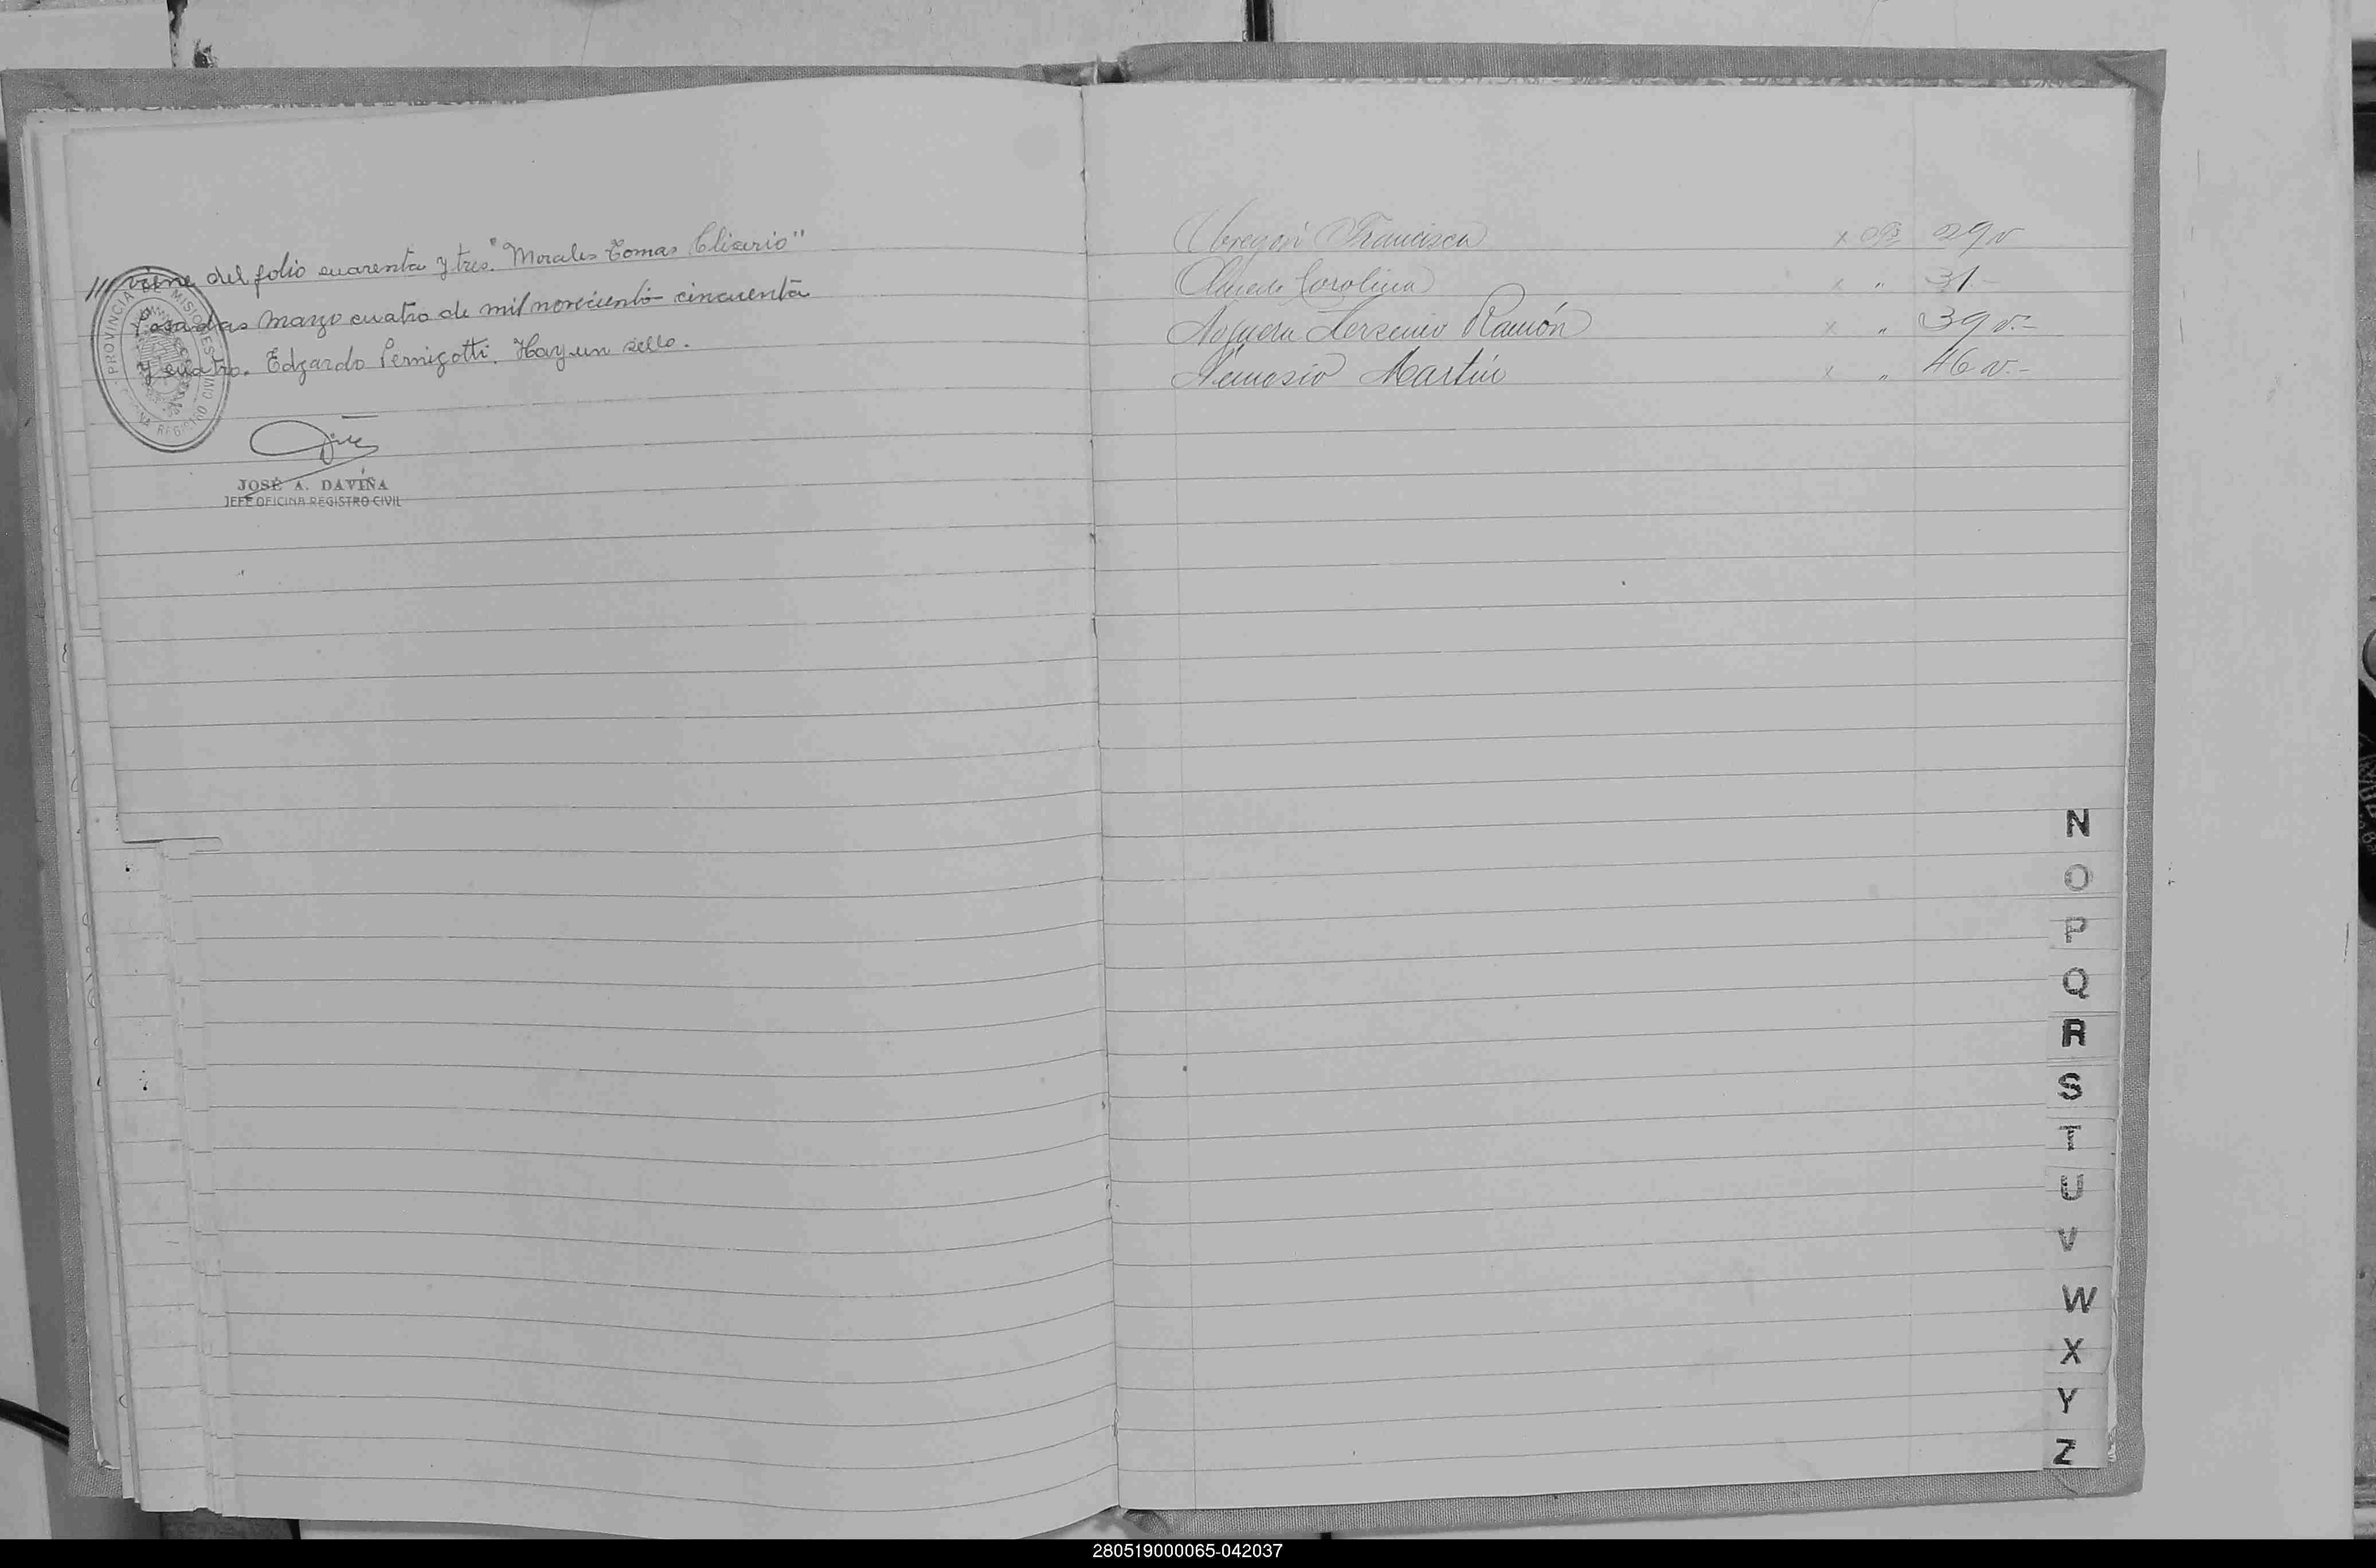 /// viene del folio cuarenta y tres. "Morales Tomas Clicerio"
Posadas marzo cuatro de mil novecientos cincuenta
y cuatro. Edgardo Pernigotti. Hay un sello.
PROVINCIA DE MISIONES
OFICINA REGISTRO CIVIL
JOSÉ A. DAVIÑA
JEFE OFICINA REGISTRO CIVIL
Obregón Francisca x 29 v
Carolina x " 31 -
Noguera Ramón x " 39 v.-
Nemesio Martín x " 46 v.-
N
O
P
Q
R
S
T
U
V
W
X
Y
Z
280519000065-042037